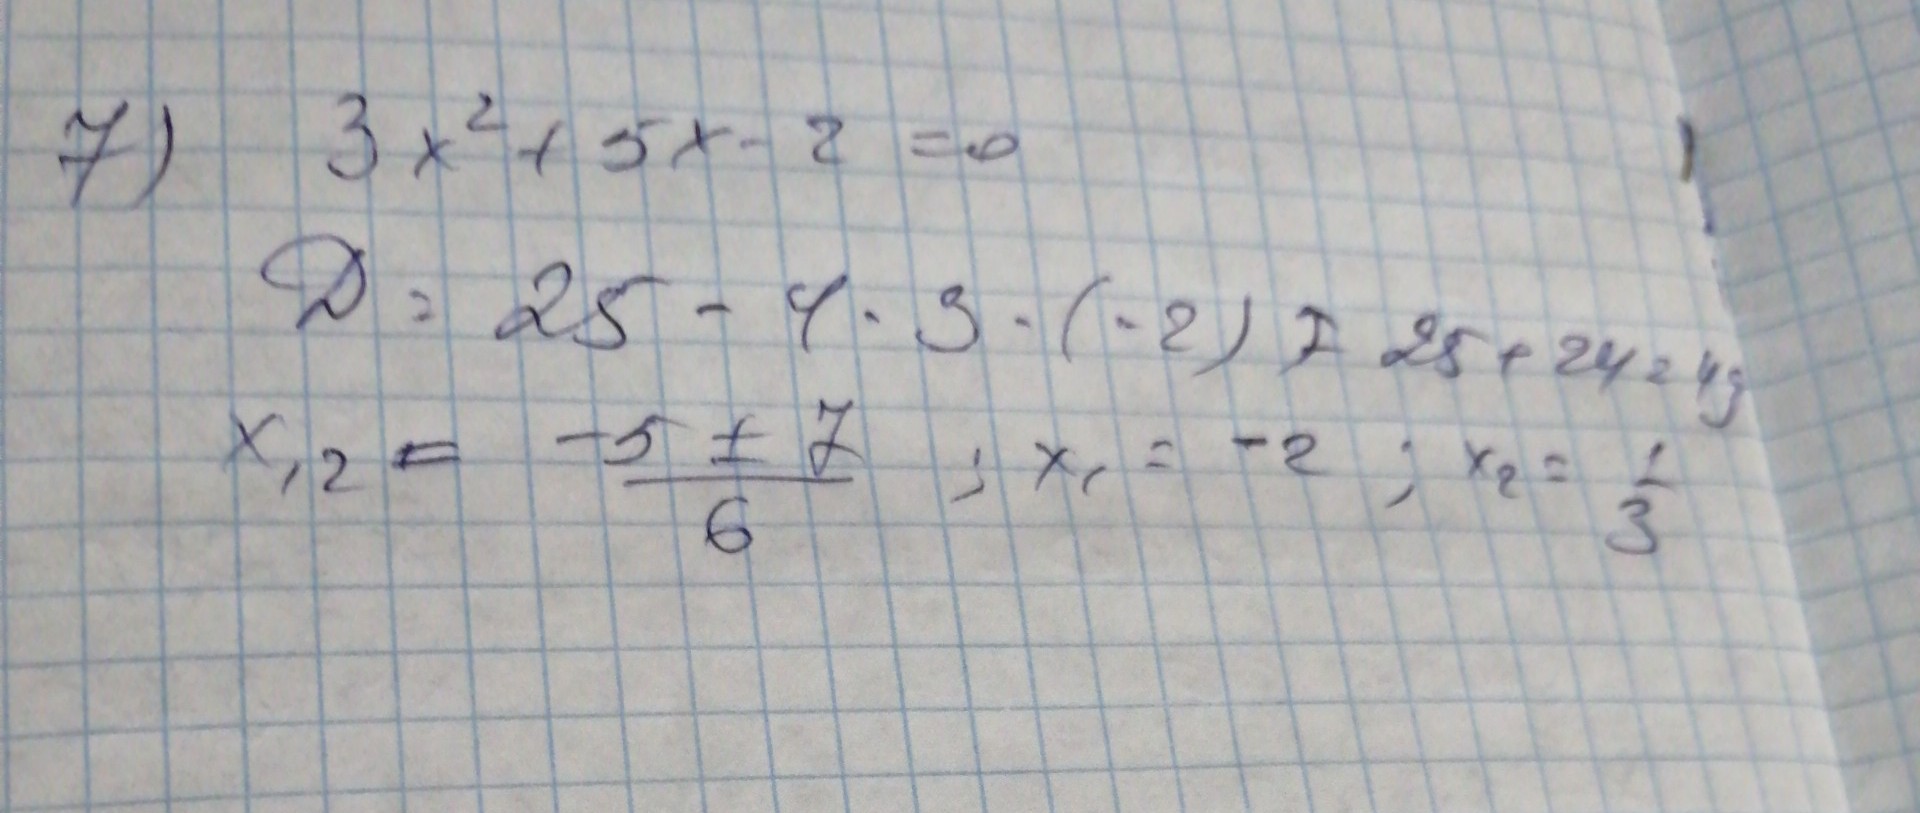 7) 3x² + 5x - 2 = 0
D = 25 - 4 · 3 · (-2) = 25 + 24 = 49
x₁,₂ = (-5 ± 7)/6 ; x₁ = -2 ; x₂ = 1/3